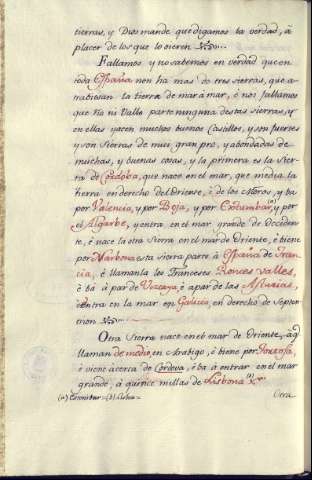 tierras, y Dios mande que digamos la verdad, á
placer de los que lo oieren.
Fallamos y no sabemos en verdad que en
toda España non ha mas de tres sierras, que a-
rabiesan la tierra de mar á mar, é nos fallamos
que ha ni Valle parte ninguna destas sierras, y
en ellas yacen muchos buenos Castillos, y son fuertes
y son Sierras de mui gran pro, y abondadas de
muchas, y buenas cosas, y la primera es la Sier-
ra de Cordoba, que nace en el mar, que media la
tierra en derecho del Oriente, é de los Moros, y ba
por Valencia, y por Beja, y por (a) y por
el Algarbe, y entra en el mar grande de Occiden-
te, é nace la otra Sierra en el mar de Oriente, é biene
por Narbona esta sierra parte á España de Fran-
cia, é llamanla los Franceses Ronces valles,
é ba á par de Vizcaya, é apar de las Asturias,
é entra en la mar en Galicia, en derecho de Septen-
trion
Otra Sierra nace en el mar de Oriente, á q.
llaman de medio, en Arabigo, é biene por
é viene acerca de Cordova, é ba á entrar en el mar
grande, á quince millas de Lisbona (b)
(a) = (b)
Otra